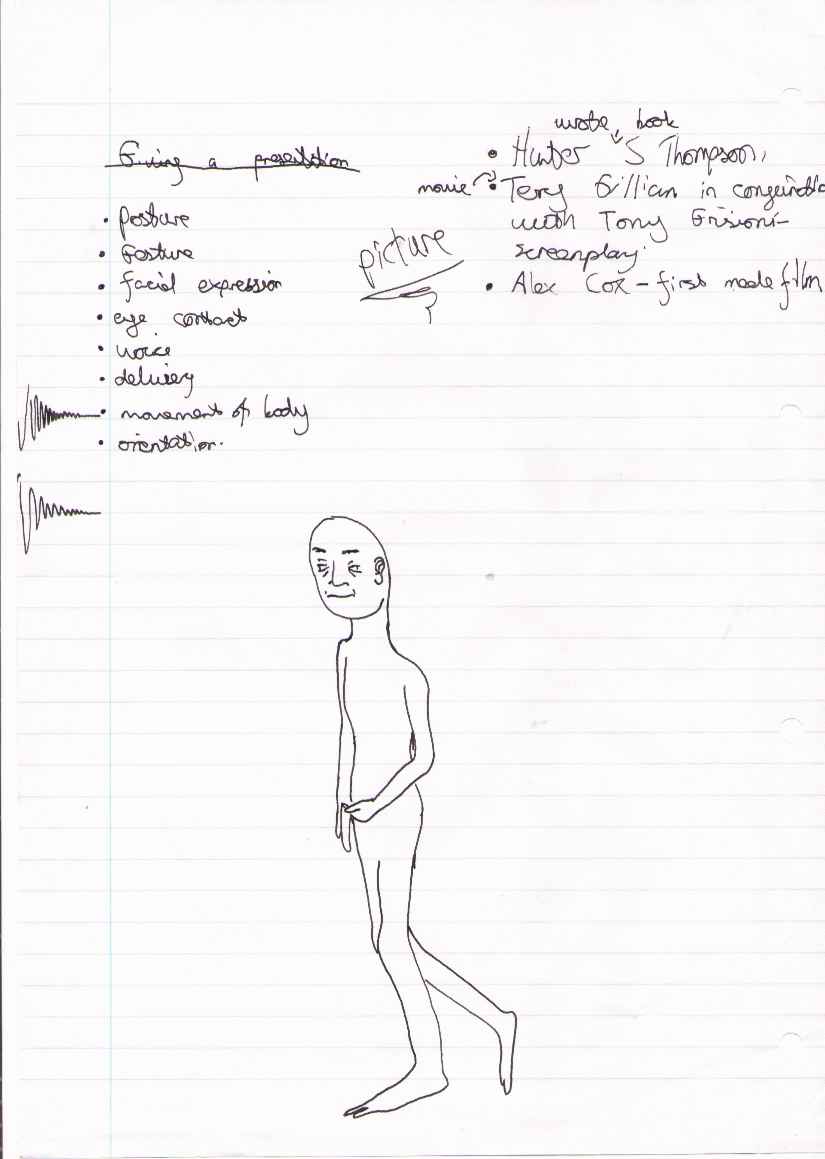 Giving a presentation
• posture
• Gesture
• facial expression
• eye contact
• voice
• delivery
• movement of body
• orientation.
picture
wrote book
• Hunter S Thompson,
movie • Terry Gillian in
with Tony Grisioni-
screenplay.
• Alex Cox - first made film